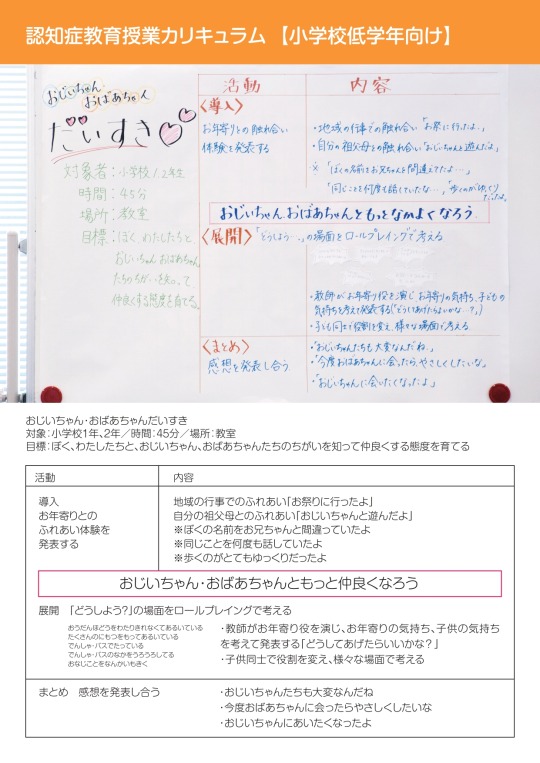 認知症教育授業カリキュラム 【小学校低学年向け】
おじいちゃん
おばあちゃん
だいすき
対象者：小学校1.2年生
時間：45分
場所：教室
目標：ぼく、わたしたちと
おじいちゃん おばあちゃん
たちのちがいを知って
仲良くする態度を育てる。
活動 内容
〈導入〉
お年寄りとの触れ合い
体験を発表する
・地域の行事での触れ合い「お祭に行ったよ。」
・自分の祖父母との触れ合い「おじいちゃんと遊んだよ」
※「ぼくの名前をお兄ちゃんと間違えてたよ…」
「同じことを何度も話していたな…」「歩くのがゆっくりだったよ。」
おじいちゃん おばあちゃんともっとなかよくなろう
〈展開〉「どうしよう…。」の場面をロールプレイングで考える
・教師がお年寄り役を演じ お年寄りの気持ち、子どもの
気持ちを考えて発表する(「どうしてあげたらいいかな…？」)
・子ども同士で役割を変え、様々な場面で考える
〈まとめ〉
感想を発表し合う
・「おじいちゃんたちも大変なんだね。」
・「今度おばあちゃんに会ったら、やさしくしたいな。」
・「おじいちゃんに会いたくなったよ」
おじいちゃん・おばあちゃんだいすき
対象：小学校1年、2年／時間：45分／場所：教室
目標：ぼく、わたしたちと、おじいちゃん、おばあちゃんたちのちがいを知って仲良くする態度を育てる
活動 内容
導入
お年寄りとの
ふれあい体験を
発表する
地域の行事でのふれあい「お祭りに行ったよ」
自分の祖父母とのふれあい「おじいちゃんと遊んだよ」
※ぼくの名前をお兄ちゃんと間違っていたよ
※同じことを何度も話していたよ
※歩くのがとてもゆっくりだったよ
おじいちゃん・おばあちゃんともっと仲良くなろう
展開 「どうしよう？」の場面をロールプレイングで考える
おうだんほどうをわたりきれなくてあるいている
たくさんのにもつをもってあるいている
でんしゃ・バスでたっている
でんしゃ・バスのなかをうろうろしてる
おなじことをなんかいもきく
・教師がお年寄り役を演じ、お年寄りの気持ち、子供の気持ち
を考えて発表する「どうしてあげたらいいかな？」
・子供同士で役割を変え、様々な場面で考える
まとめ 感想を発表し合う
・おじいちゃんたちも大変なんだね
・今度おばあちゃんに会ったらやさしくしたいな
・おじいちゃんにあいたくなったよ